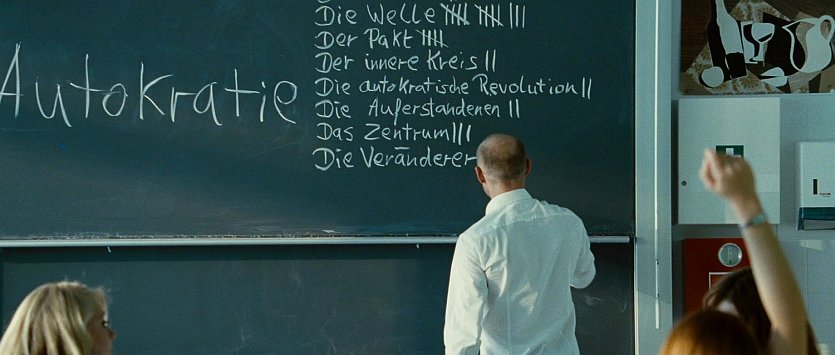 Autokratie
Die Welle |||| |||| |||
Der Pakt ||||
Der innere Kreis ||
Die autokratische Revolution ||
Die Auferstandenen ||
Das Zentrum |||
Die Veränderer